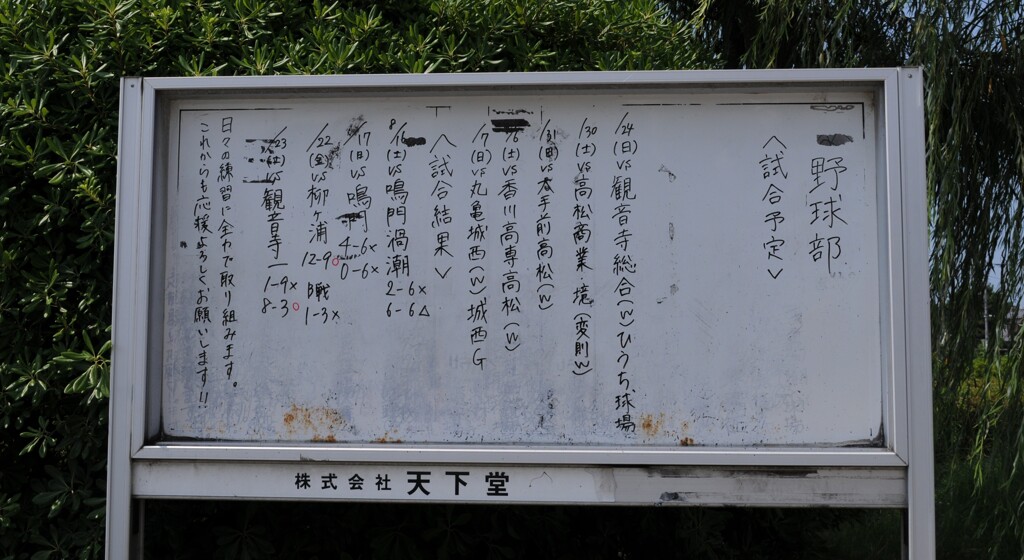 野球部
〈試合予定〉
/24(日)vs観音寺総合(W)ひうち球場
/30(土)vs高松商業 境(変則W)
/31(日)vs本手前高松(W)
/6(土)vs香川高専高松(W)
/7(日)vs丸亀城西(W)城西G
〈試合結果〉
8/16(土)vs鳴門渦潮 2-6× 6-6△
/17(日)vs鳴門 4-6× 0-6×
/22(金)vs柳ヶ浦 12-9○ B戦 1-3×
/23(土)vs観音寺一 1-9× 8-3○
日々の練習に全力で取り組みます。
これからも応援よろしくお願いします!!
株式会社 天下堂